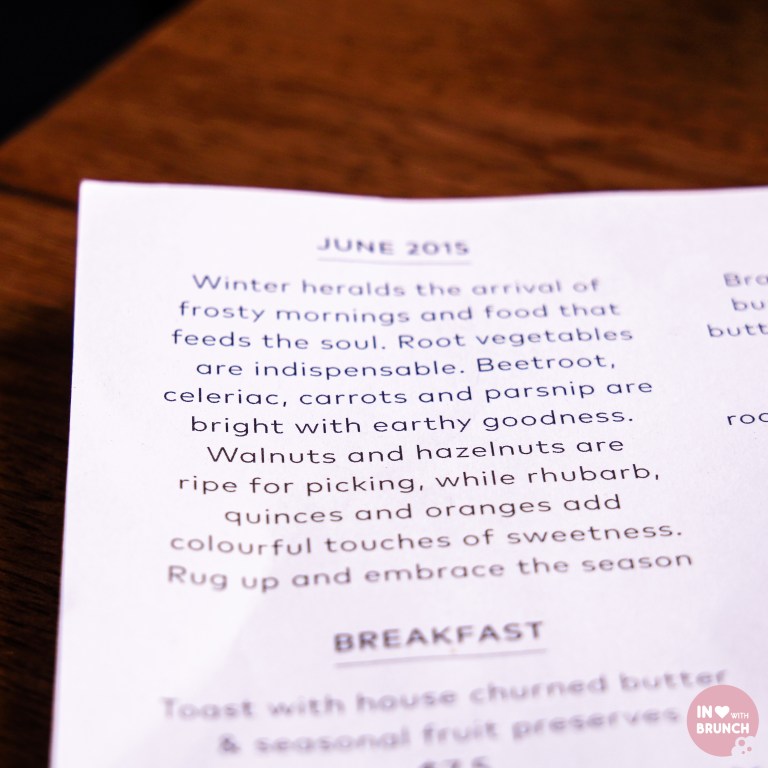 JUNE 2015
Winter heralds the arrival of
frosty mornings and food that
feeds the soul. Root vegetables
are indispensable. Beetroot,
celeriac, carrots and parsnip are
bright with earthy goodness.
Walnuts and hazelnuts are
ripe for picking, while rhubarb,
quinces and oranges add
colourful touches of sweetness.
Rug up and embrace the season
BREAKFAST
Toast with house churned butter
& seasonal fruit preserves
Bra
bu
butt
roo
IN WITH
BRUNCH